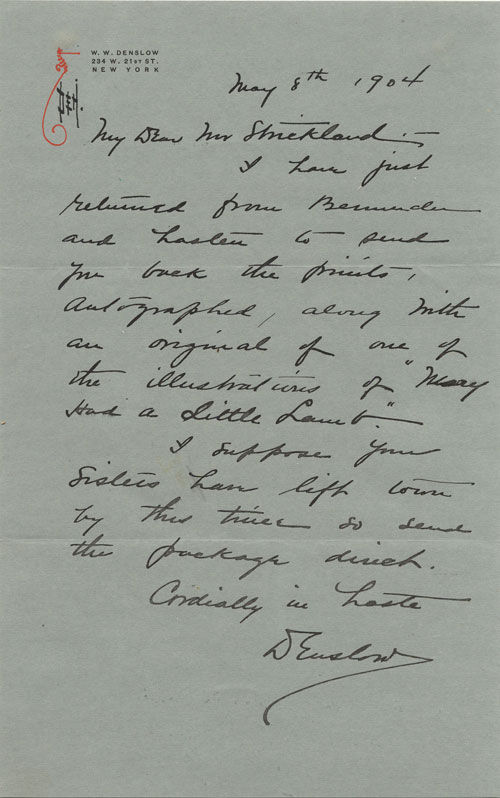 W. W. DENSLOW
234 W. 21ST ST.
NEW YORK
May 8th 1904
My Dear Mr Strickland:—
I have just
returned from Bermuda
and hasten to send
you back the prints,
autographed, along with
an original of one of
the illustrations of "Mary
Had a Little Lamb."
I suppose your
sisters have left town
by this time so send
the package direct.
Cordially in haste
Denslow